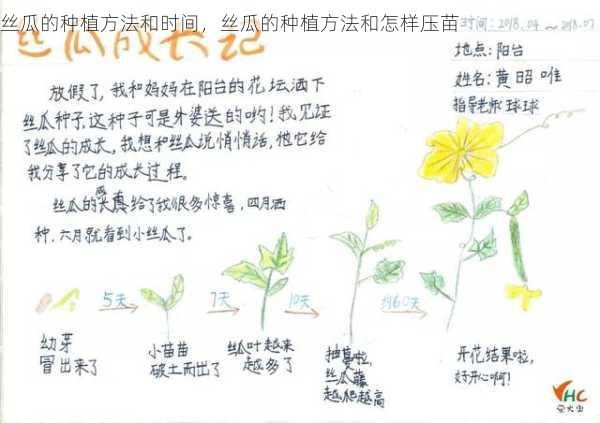 丝瓜的种植方法和时间，丝瓜的种植方法和怎样压苗
丝瓜成长记
时间：2018.04～2018.07
地点：阳台
姓名：黄昭唯
指导老师 球球
放假了，我和妈妈在阳台的花坛洒下
丝瓜种子,这种子可是外婆送的哟！我见证
了丝瓜的成长。我想和丝瓜说悄悄话，他它给
我分享了它的成长过程。
丝瓜的给了我很多惊喜，四月洒
种，六月就看到小丝瓜了。
5天
7天
10天
约60天
幼芽
冒出来了
小苗苗
破土而出了
丝瓜叶越来
越多了
抽啦，
丝瓜藤
越爬越高
开花结果啦，
好开心啊！
HC